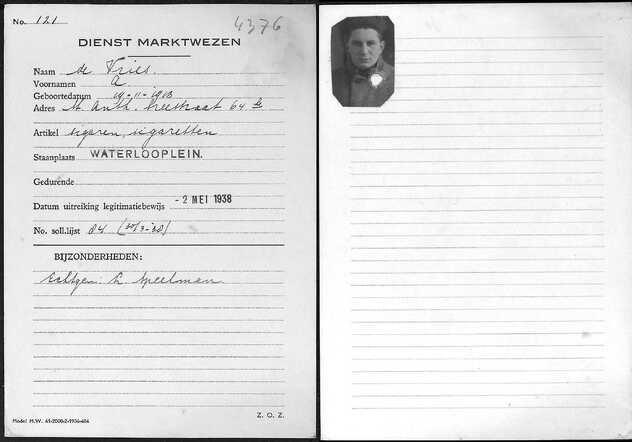 No. 121
4376
DIENST MARKTWEZEN
Naam de Vries.
Voornamen A.
Geboortedatum 19-11-1913
Adres St. Anth. breestraat 64
Artikel sigaren, sigaretten
Staanplaats WATERLOOPLEIN.
Gedurende
Datum uitreiking legitimatiebewijs - 2 MEI 1938
No. soll.lijst 84
BIJZONDERHEDEN:
Echtgen: Speelman
Model M.W. 61-2000-2-1936-606
Z. O. Z.